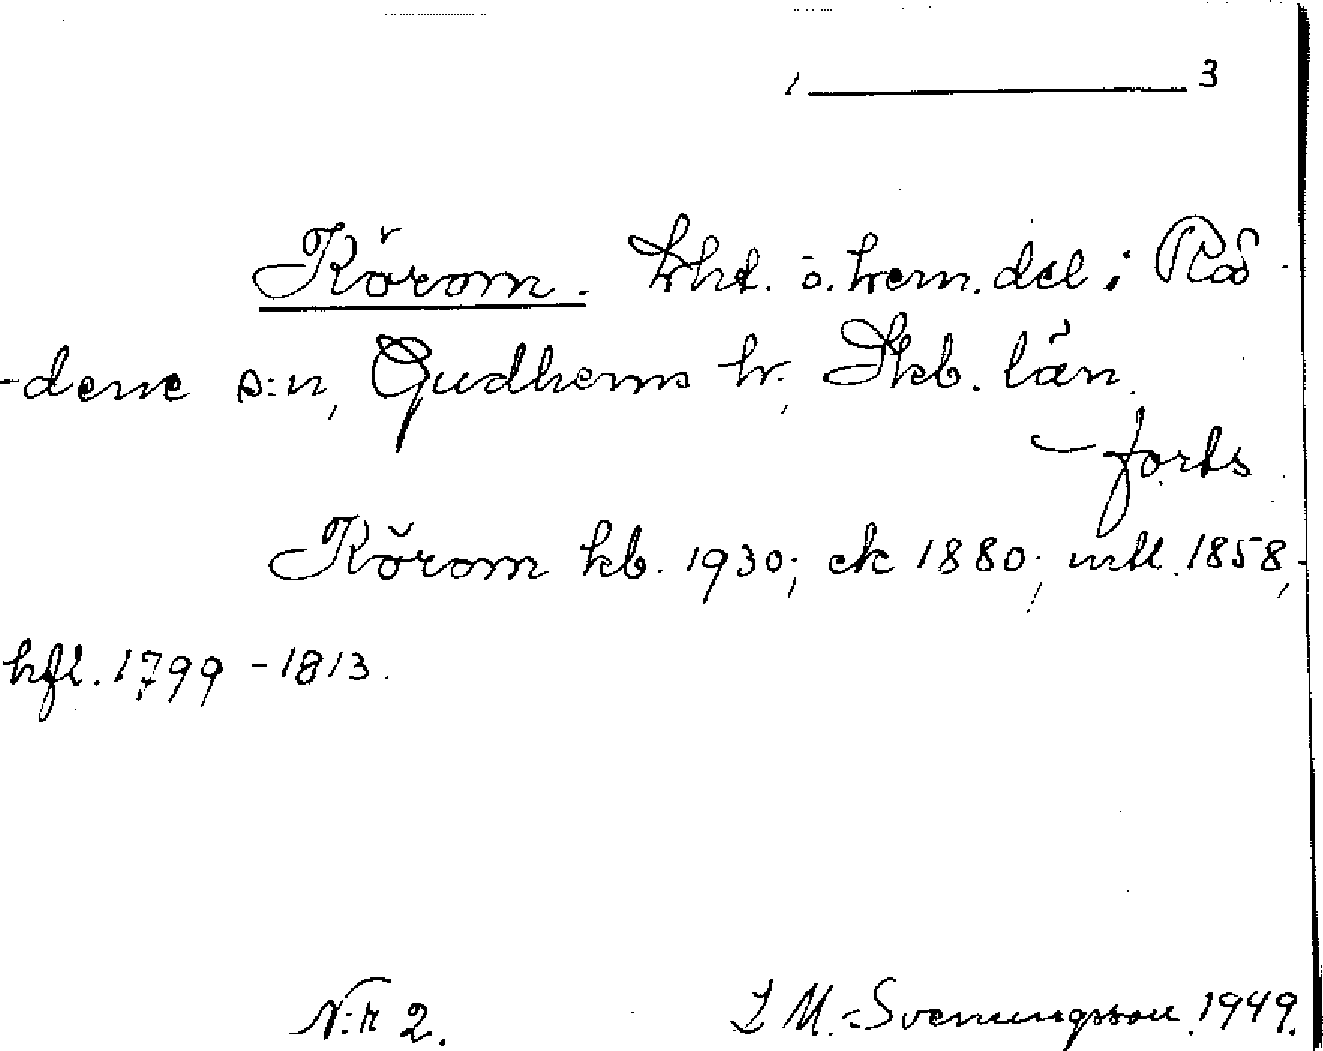 3
Körom. tht. o. hem. del i Rå-
-dene s:n, Gudhems hr. Skb. län.
forts
Körom kb. 1930; ek 1880; mtl. 1858,-
hfl. 1799-1813.
N:r 2. I M.-Svenungsson 1949.